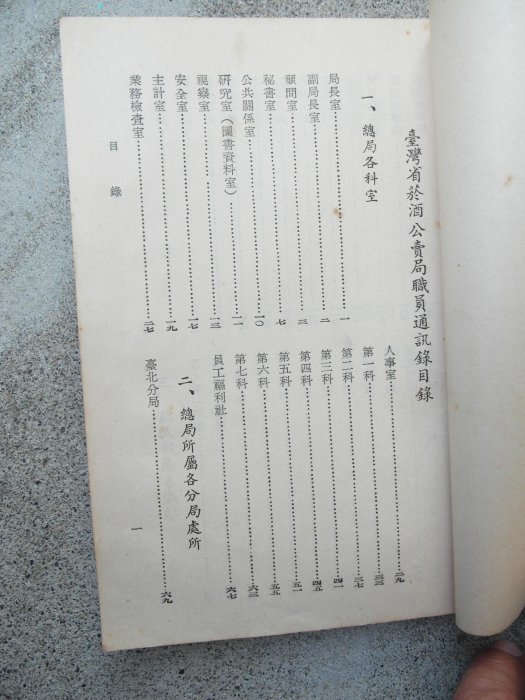 臺灣省菸酒公賣局職員通訊錄目錄
一、總局各科室
局長室……一
副局長室……二
顧問室……三
秘書室……七
公共關係室……一〇
研究室（圖書資料室）……一一
視察室……一三
安全室……一七
主計室……一九
業務檢查室……二七
人事室……二九
第一科……三三
第二科……三七
第三科……四一
第四科……四五
第五科……五一
第六科……五五
第七科……六三
員工福利社……六七
二、總局所屬各分局處所
臺北分局……六九
目錄
一